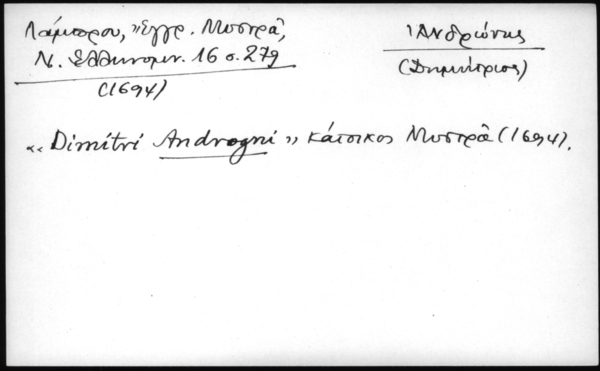 Λάμπρου, "Έγγρ. Μυστρᾶ,
Ν. Ἑλληνομν. 16 σ. 279
(1694)
Ἀνδρώνης
(Δημήτριος)
«Dimitri Androgni» κάτοικος Μυστρᾶ (1694).